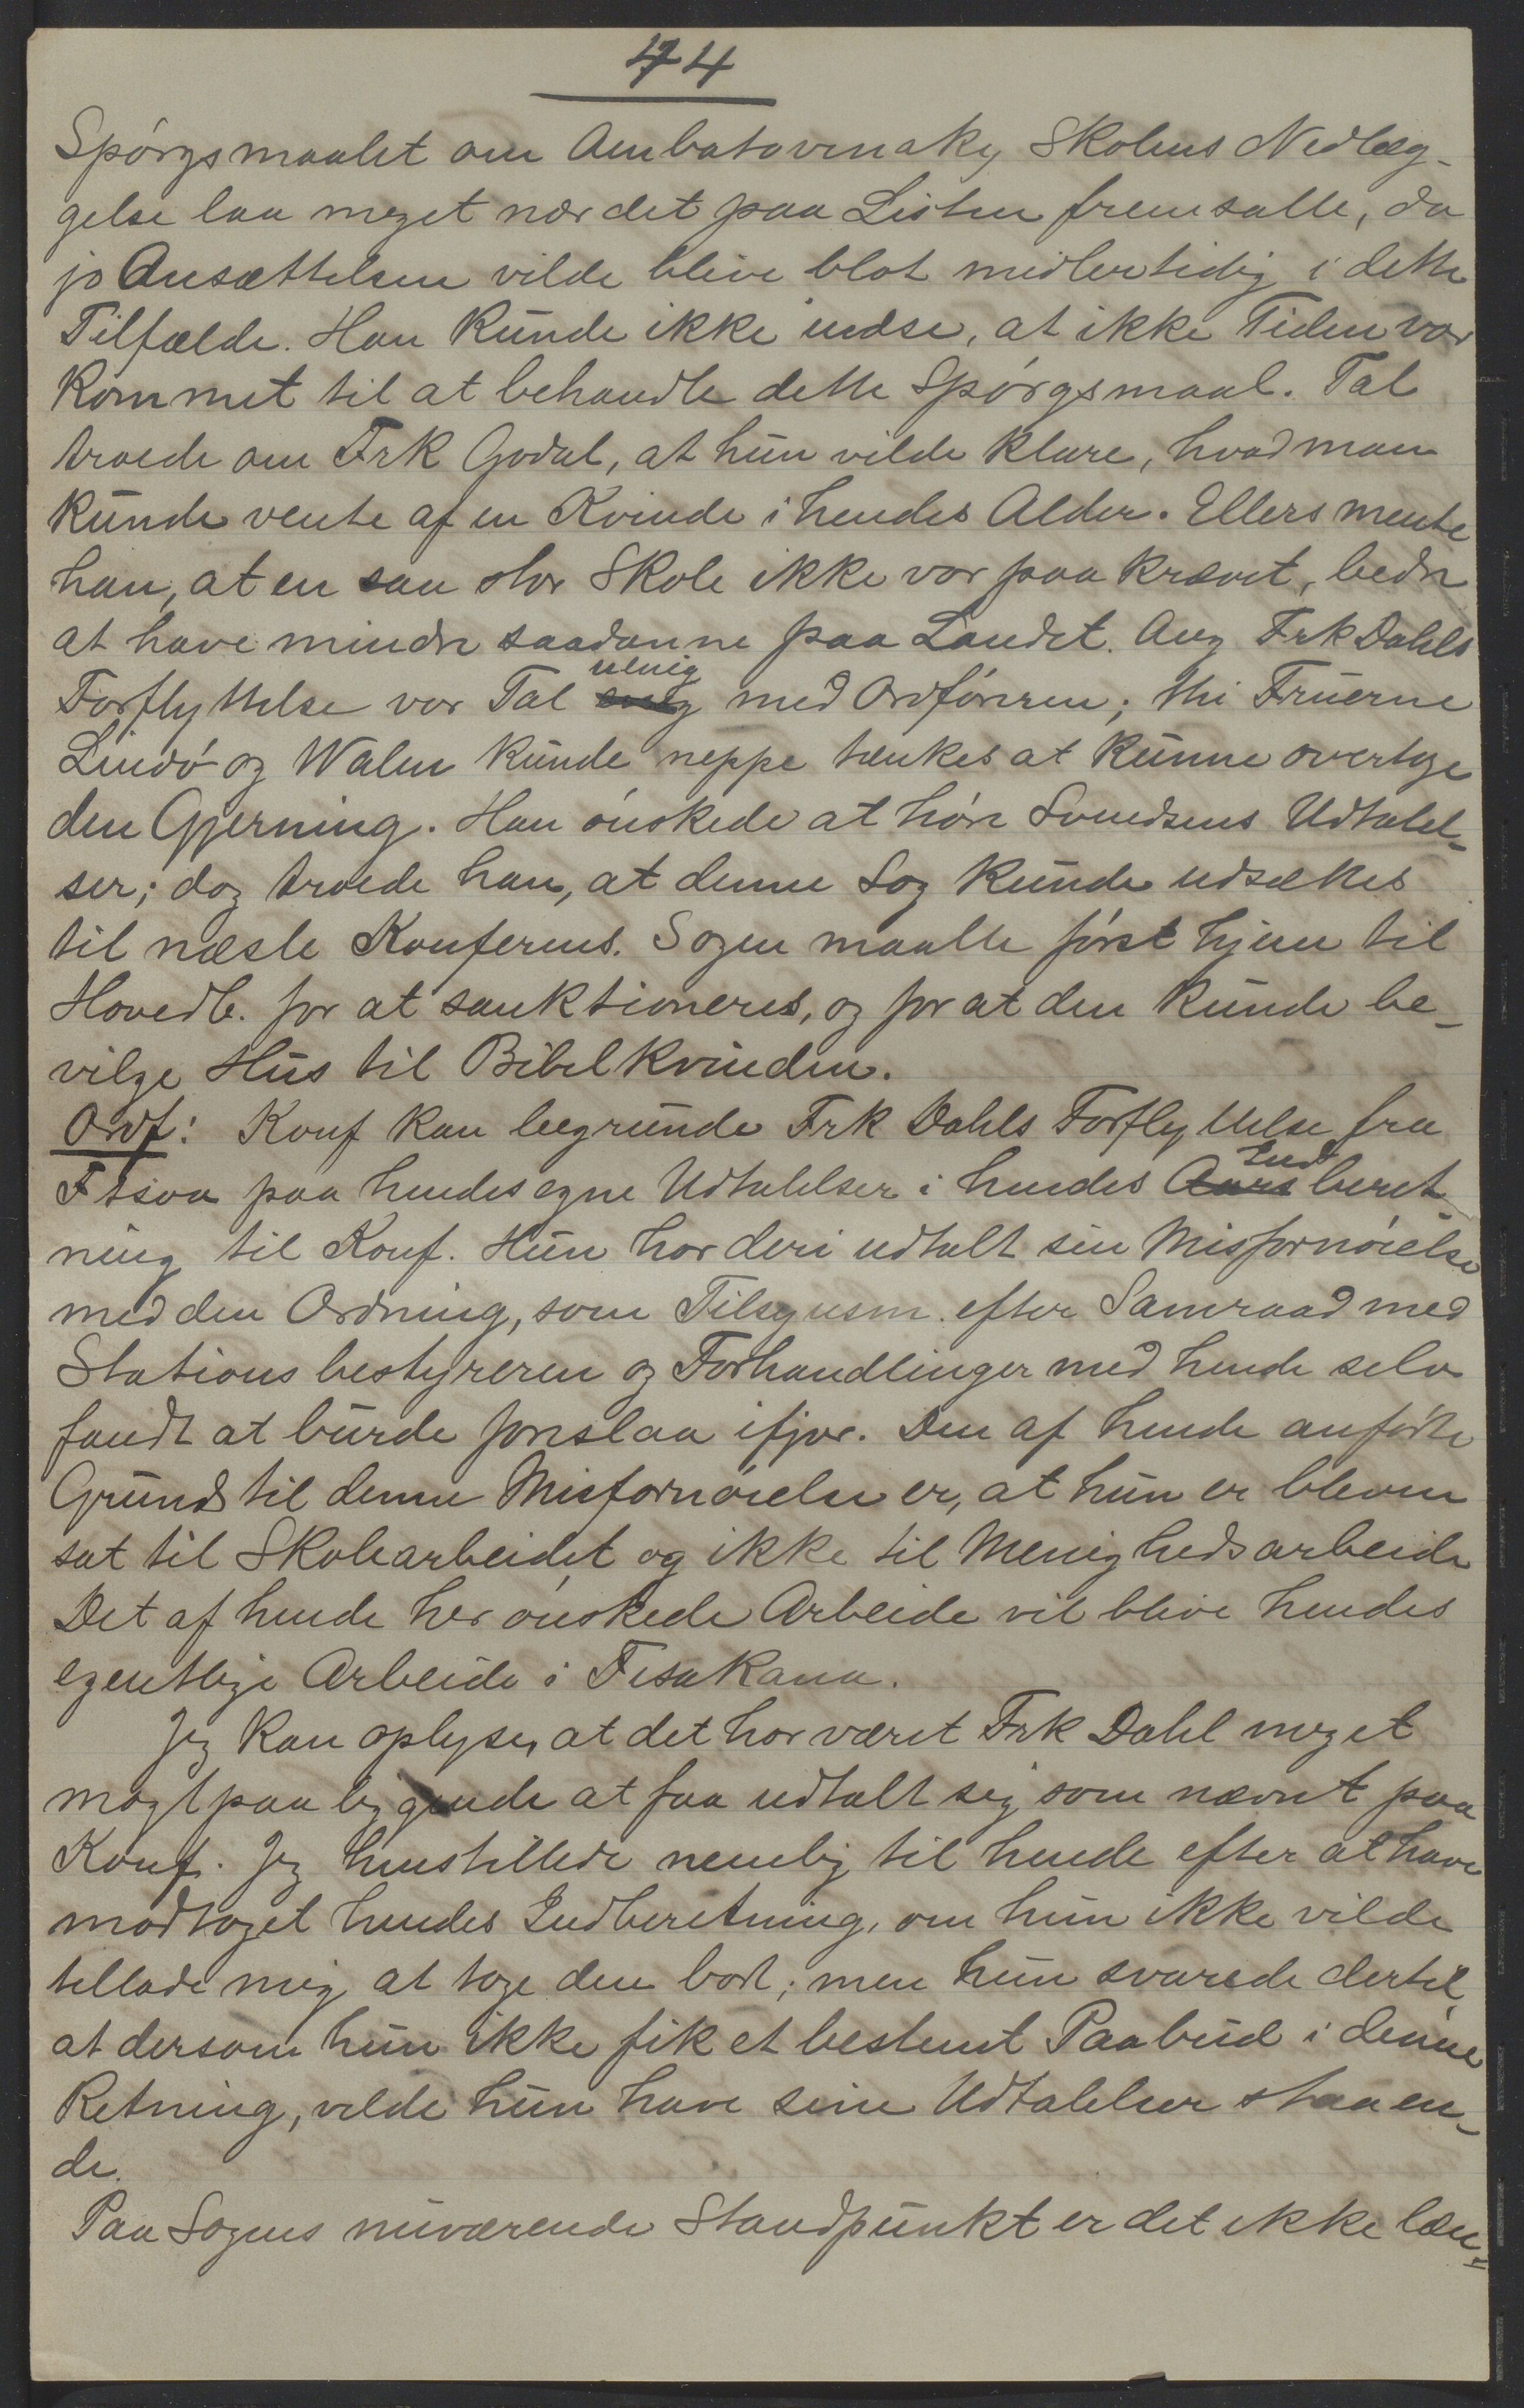 44
Spørgsmaalet om Ambatovinaky Skolens Nedlæg-
gelse laa meget nær det paa Listen fremsatte, da
jo Ansættelsen vilde blive blot midlertidig i dette
Tilfælde. Han kunde ikke indse, at ikke Tiden var
kommet til at behandle dette Spørgsmaal. Tal
troede om Frk Godal, at hun vilde klare, hvad man
kunde vente af en Kvinde i hendes Alder. Ellers mente
han, at en saa stor Skole ikke var paa krævet, bedre
at have mindre saadanne paa Landet. Ang Frk Dahls
Forflyttelse var Tal uenig med Ordføreren; thi Fruerne
Lindø og Walen kunde neppe tænkes at kunne overtage
den Gjerning. Han ønskede at høre Svendsens Udtalel-
ser; dog troede han, at denne Sag kunde udsættes
til næste Konferens. Sagen maatte først hjem til
Hovedb. for at sanktioneres, og for at den kunde be-
vilge Hus til Bibelkvinden.
Ordf: Konf kan begrunde Frk Dahls Forflyttelse fra
Ftsoa paa hendes egne Udtalelser i hendes Aars Indberet-
ning til Konf. Hun har deri udtalt sin Misfornøielse
med den Ordning, som Tilsynsm. efter Samraad med
Stationsbestyreren og Forhandlinger med hende selv
fandt at burde foreslaa ifjor. Den af hende anførte
Grund til denne Misfornøielse er, at hun er bleven
sat til Skolearbeidet og ikke til Menighedsarbeide
Det af hende her ønskede Arbeide vil blive hendes
egentlige Arbeide i Fisakana.
Jeg kan oplyse, at det har været Frk Dahl meget
magtpaaliggende at faa udtalt sig som nævnt paa
Konf. Jeg henstillede nemlig til hende efter at have
modtaget hendes Indberetning, om hun ikke vilde
tillade mig at tage den bort; men hun svarede dertil,
at dersom hun ikke fik et bestemt Paabud i denne
Retning, vilde hun have sine Udtalelser staaen-
de.
Paa Sagens nuværende Standpunkt er det ikke læn-